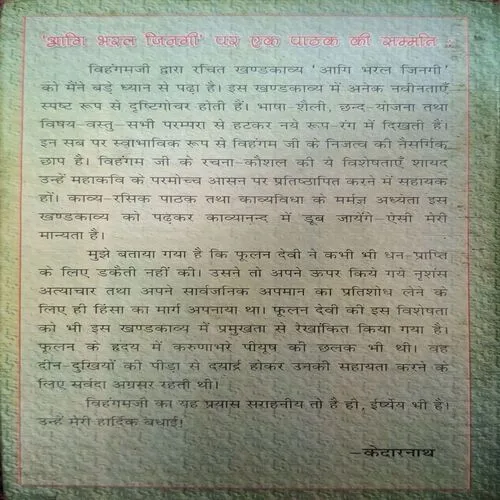 'आगि भरल जिनगी' पर एक पाठक की सम्मति :
विहंगमजी द्वारा रचित खण्डकाव्य 'आगि भरल जिनगी'
को मैंने बड़े ध्यान से पढ़ा है। इस खण्डकाव्य में अनेक नवीनताएँ
स्पष्ट रूप से दृष्टिगोचर होती हैं। भाषा-शैली, छन्द-योजना तथा
विषय-वस्तु-सभी परम्परा से हटकर नये रूप-रंग में दिखती हैं।
इन सब पर स्वाभाविक रूप से विहंगम जी के निजत्व की नैसर्गिक
छाप है। विहंगम जी के रचना-कौशल की ये विशेषताएँ शायद
उन्हें महाकवि के परमोच्च आसन पर प्रतिष्ठापित करने में सहायक
हों। काव्य-रसिक पाठक तथा काव्यविधा के मर्मज्ञ अध्येता इस
खण्डकाव्य को पढ़कर काव्यानन्द में डूब जायेंगे-ऐसी मेरी
मान्यता है।
मुझे बताया गया है कि फूलन देवी ने कभी भी धन-प्राप्ति
के लिए डकैती नहीं की। उसने तो अपने ऊपर किये गये नृशंस
अत्याचार तथा अपने सार्वजनिक अपमान का प्रतिशोध लेने के
लिए ही हिंसा का मार्ग अपनाया था। फूलन देवी की इस विशेषता
को भी इस खण्डकाव्य में प्रमुखता से रेखांकित किया गया है।
फूलन के हृदय में करुणाभरे पीयूष की छलक भी थी। वह
दीन-दुखियों की पीड़ा से दयार्द्र होकर उनकी सहायता करने के
लिए सर्वदा अग्रसर रहती थी।
विहंगमजी का यह प्रयास सराहनीय तो है ही, ईर्ष्येय भी है।
उन्हें मेरी हार्दिक बधाई!
-केदारनाथ